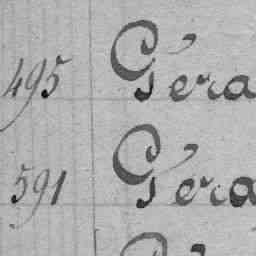 495 Géra
591 Géra